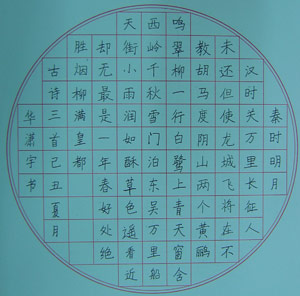 秦时明月
汉时关万里长征人
未还但使龙城飞将在不
教胡马度阴山两个黄鹂
鸣翠柳一行白鹭上青天窗含
西岭千秋雪门泊东吴万里船
天街小雨润如酥草色遥看近
却无最是一年春好处绝
胜烟柳满皇都
古诗三首己丑夏月
华潇宇书